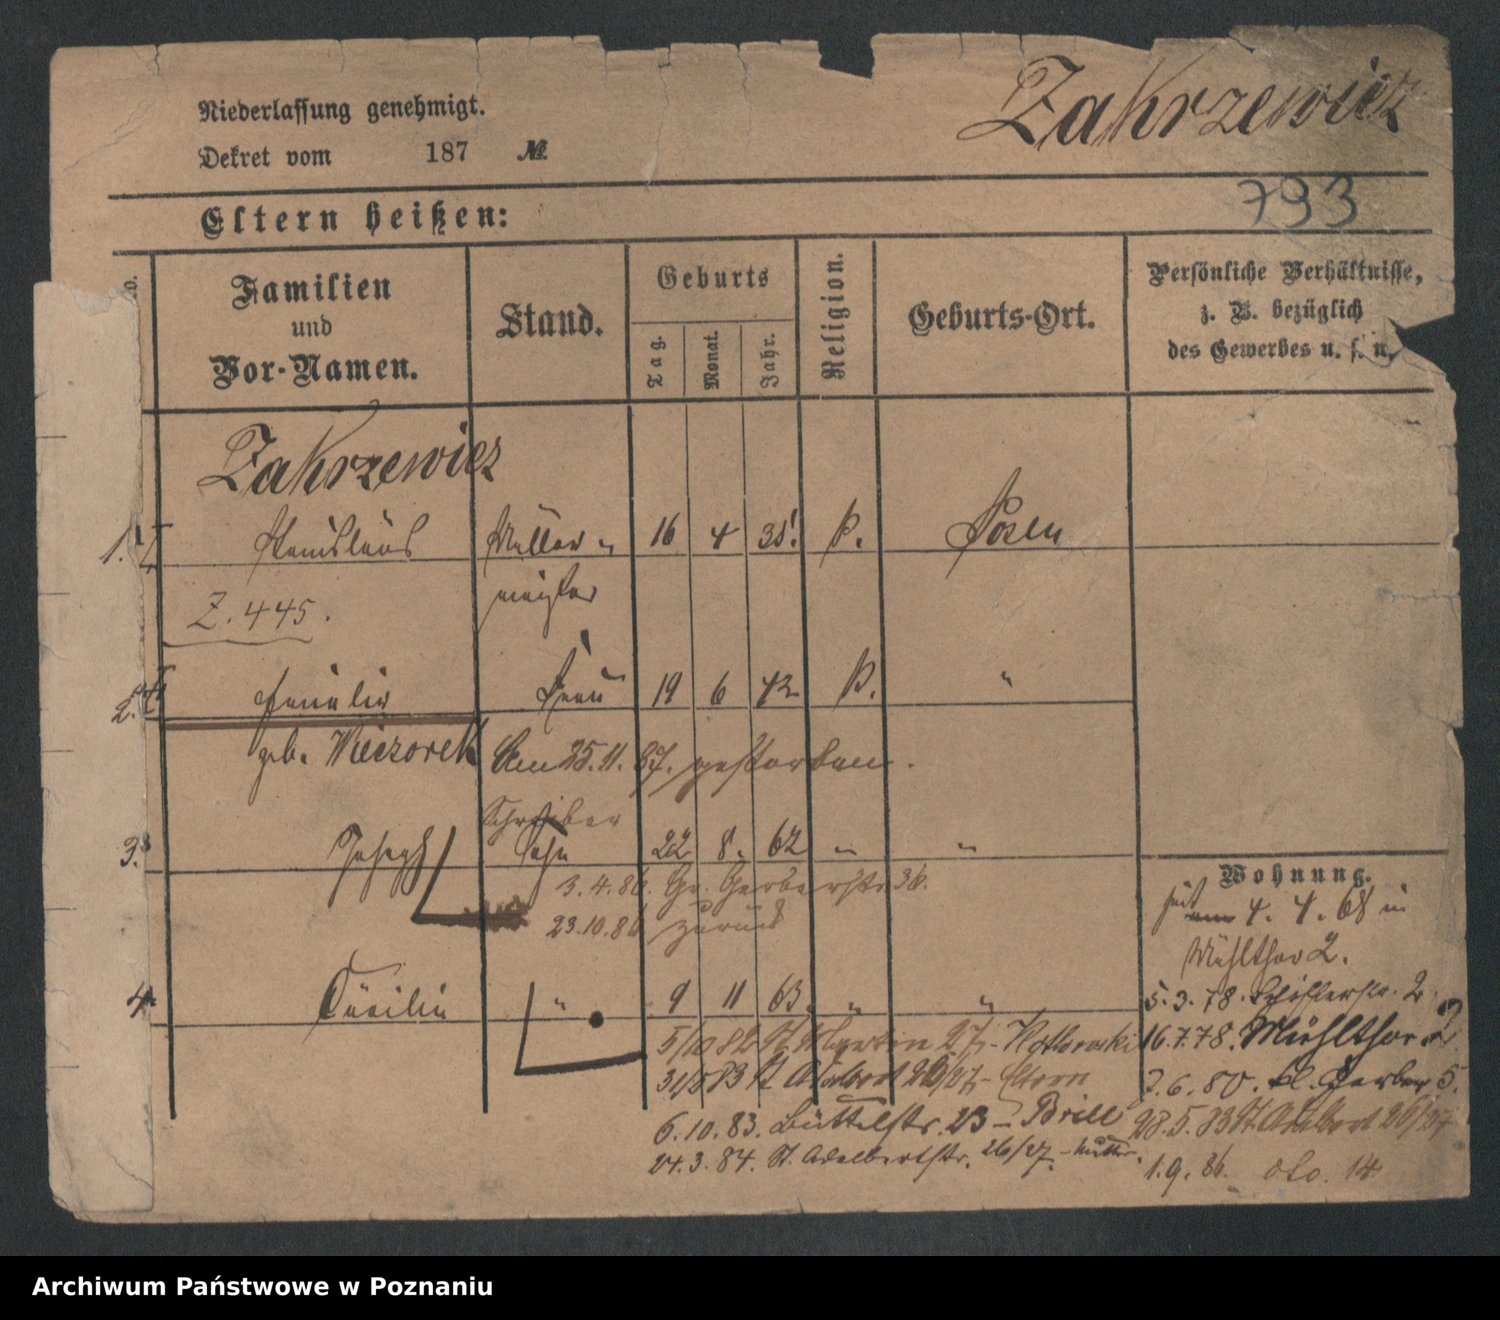 Niederlassung genehmigt.
Dekret vom 187 №
Zakrzewicz
793
Eltern heißen:
No.
Familien und Vor-Namen.
Stand.
Geburts
Tag.
Monat.
Jahr.
Religion.
Geburts-Ort.
Persönliche Verhältnisse,
z. B. bezüglich
des Gewerbes u. s. w.
Zakrzewicz
1. Stanislaus Müller- 16 4 35 P. Posen
meister
Z. 445.
2. Frau 19 6 42 P. "
geb. Wieczorek Am 25.11.87. gestorben.
Schreiber
3. Joseph Sohn 22 8. 62 " "
3.4.86. Gr. Gerberstr. 36.
23.10.86 zurück
4. Cäcilie " 9 11 63. " "
5/10 82 St Martin 27 - Kotlowski
31/5 83 St Adalbert 26/27 - Eltern
6.10.83. Büttelstr. 23 - Brill
24.3.84. St. Adalbertstr. 26/27. - Mutter.
Wohnung.
seit 4. 4. 68 in
Mühlthor 2.
5.3.78. 2.
16.7.78. Mühlthor 2
7.6.80. kl. Gerber 5.
28.5.83 St Adalbert 26/27
1.9.86. dto. 14
Archiwum Państwowe w Poznaniu